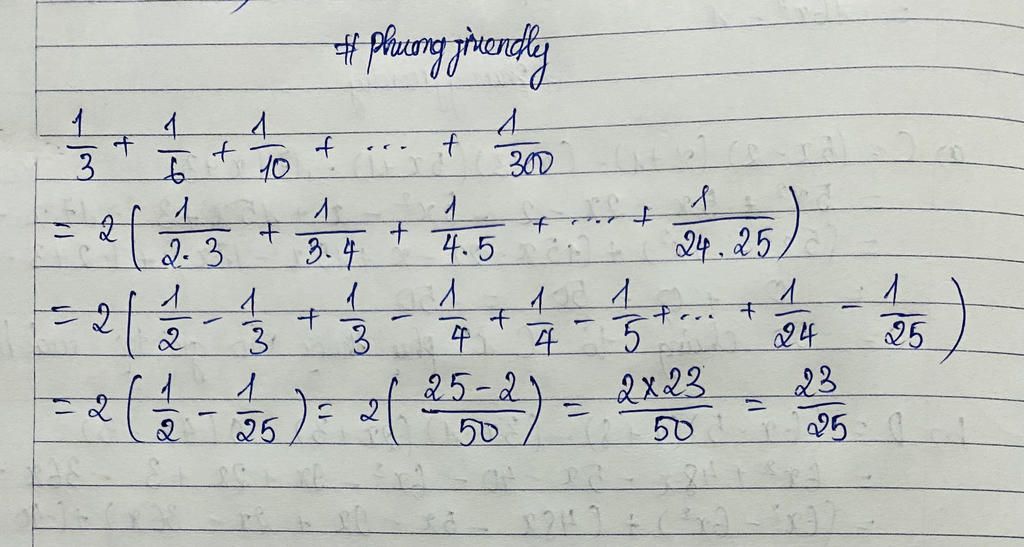 # phuongfriendly
1/3 + 1/6 + 1/10 + ... + 1/300
= 2 ( 1/2.3 + 1/3.4 + 1/4.5 + .... + 1/24.25 )
= 2 ( 1/2 - 1/3 + 1/3 - 1/4 + 1/4 - 1/5 + ... + 1/24 - 1/25 )
= 2 ( 1/2 - 1/25 ) = 2 ( 25-2/50 ) = 2×23/50 = 23/25